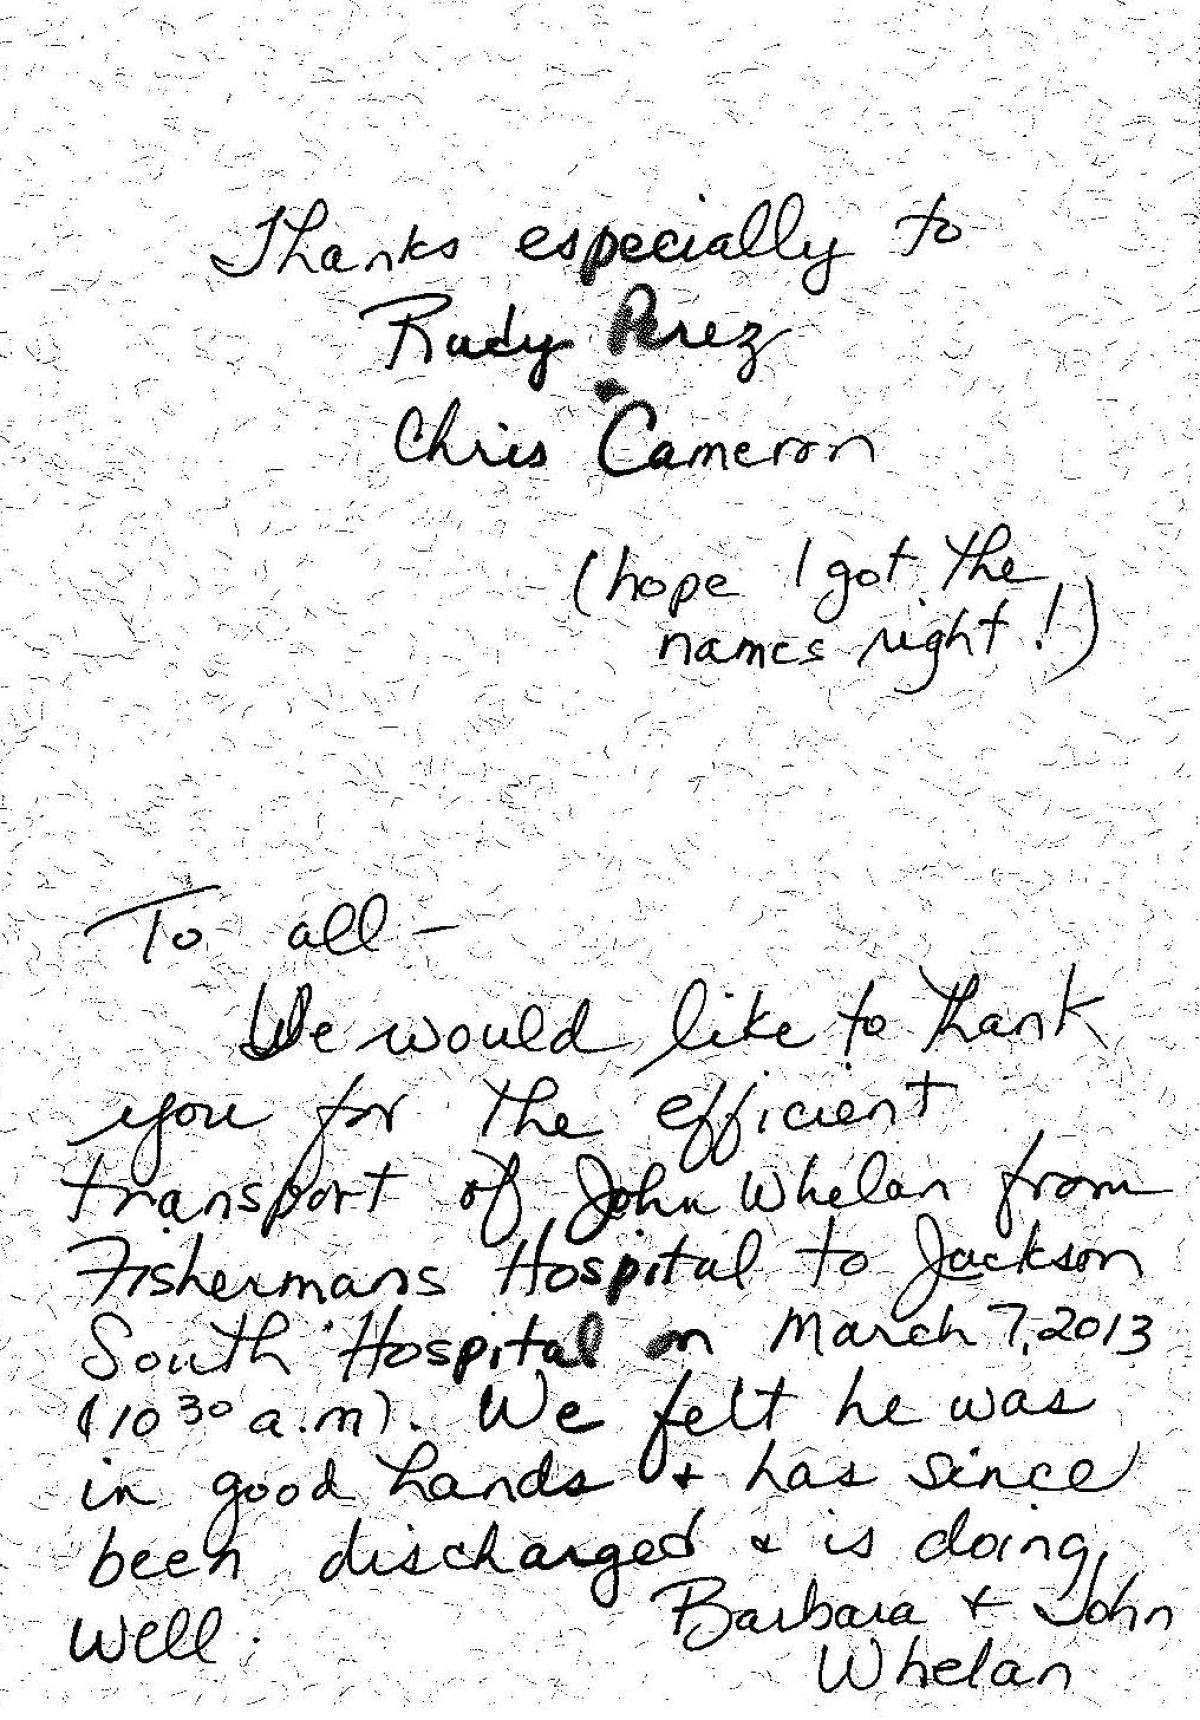 Thanks especially to
Rudy Perez
Chris Cameron
(hope I got the
names right!)
To all -
We would like to thank
you for the efficient
transport of John Whelan from
Fishermans Hospital to Jackson
South Hospital on March 7, 2013
(10 30 a.m). We felt he was
in good hands + has since
been discharged & is doing
well.
Barbara + John
Whelan